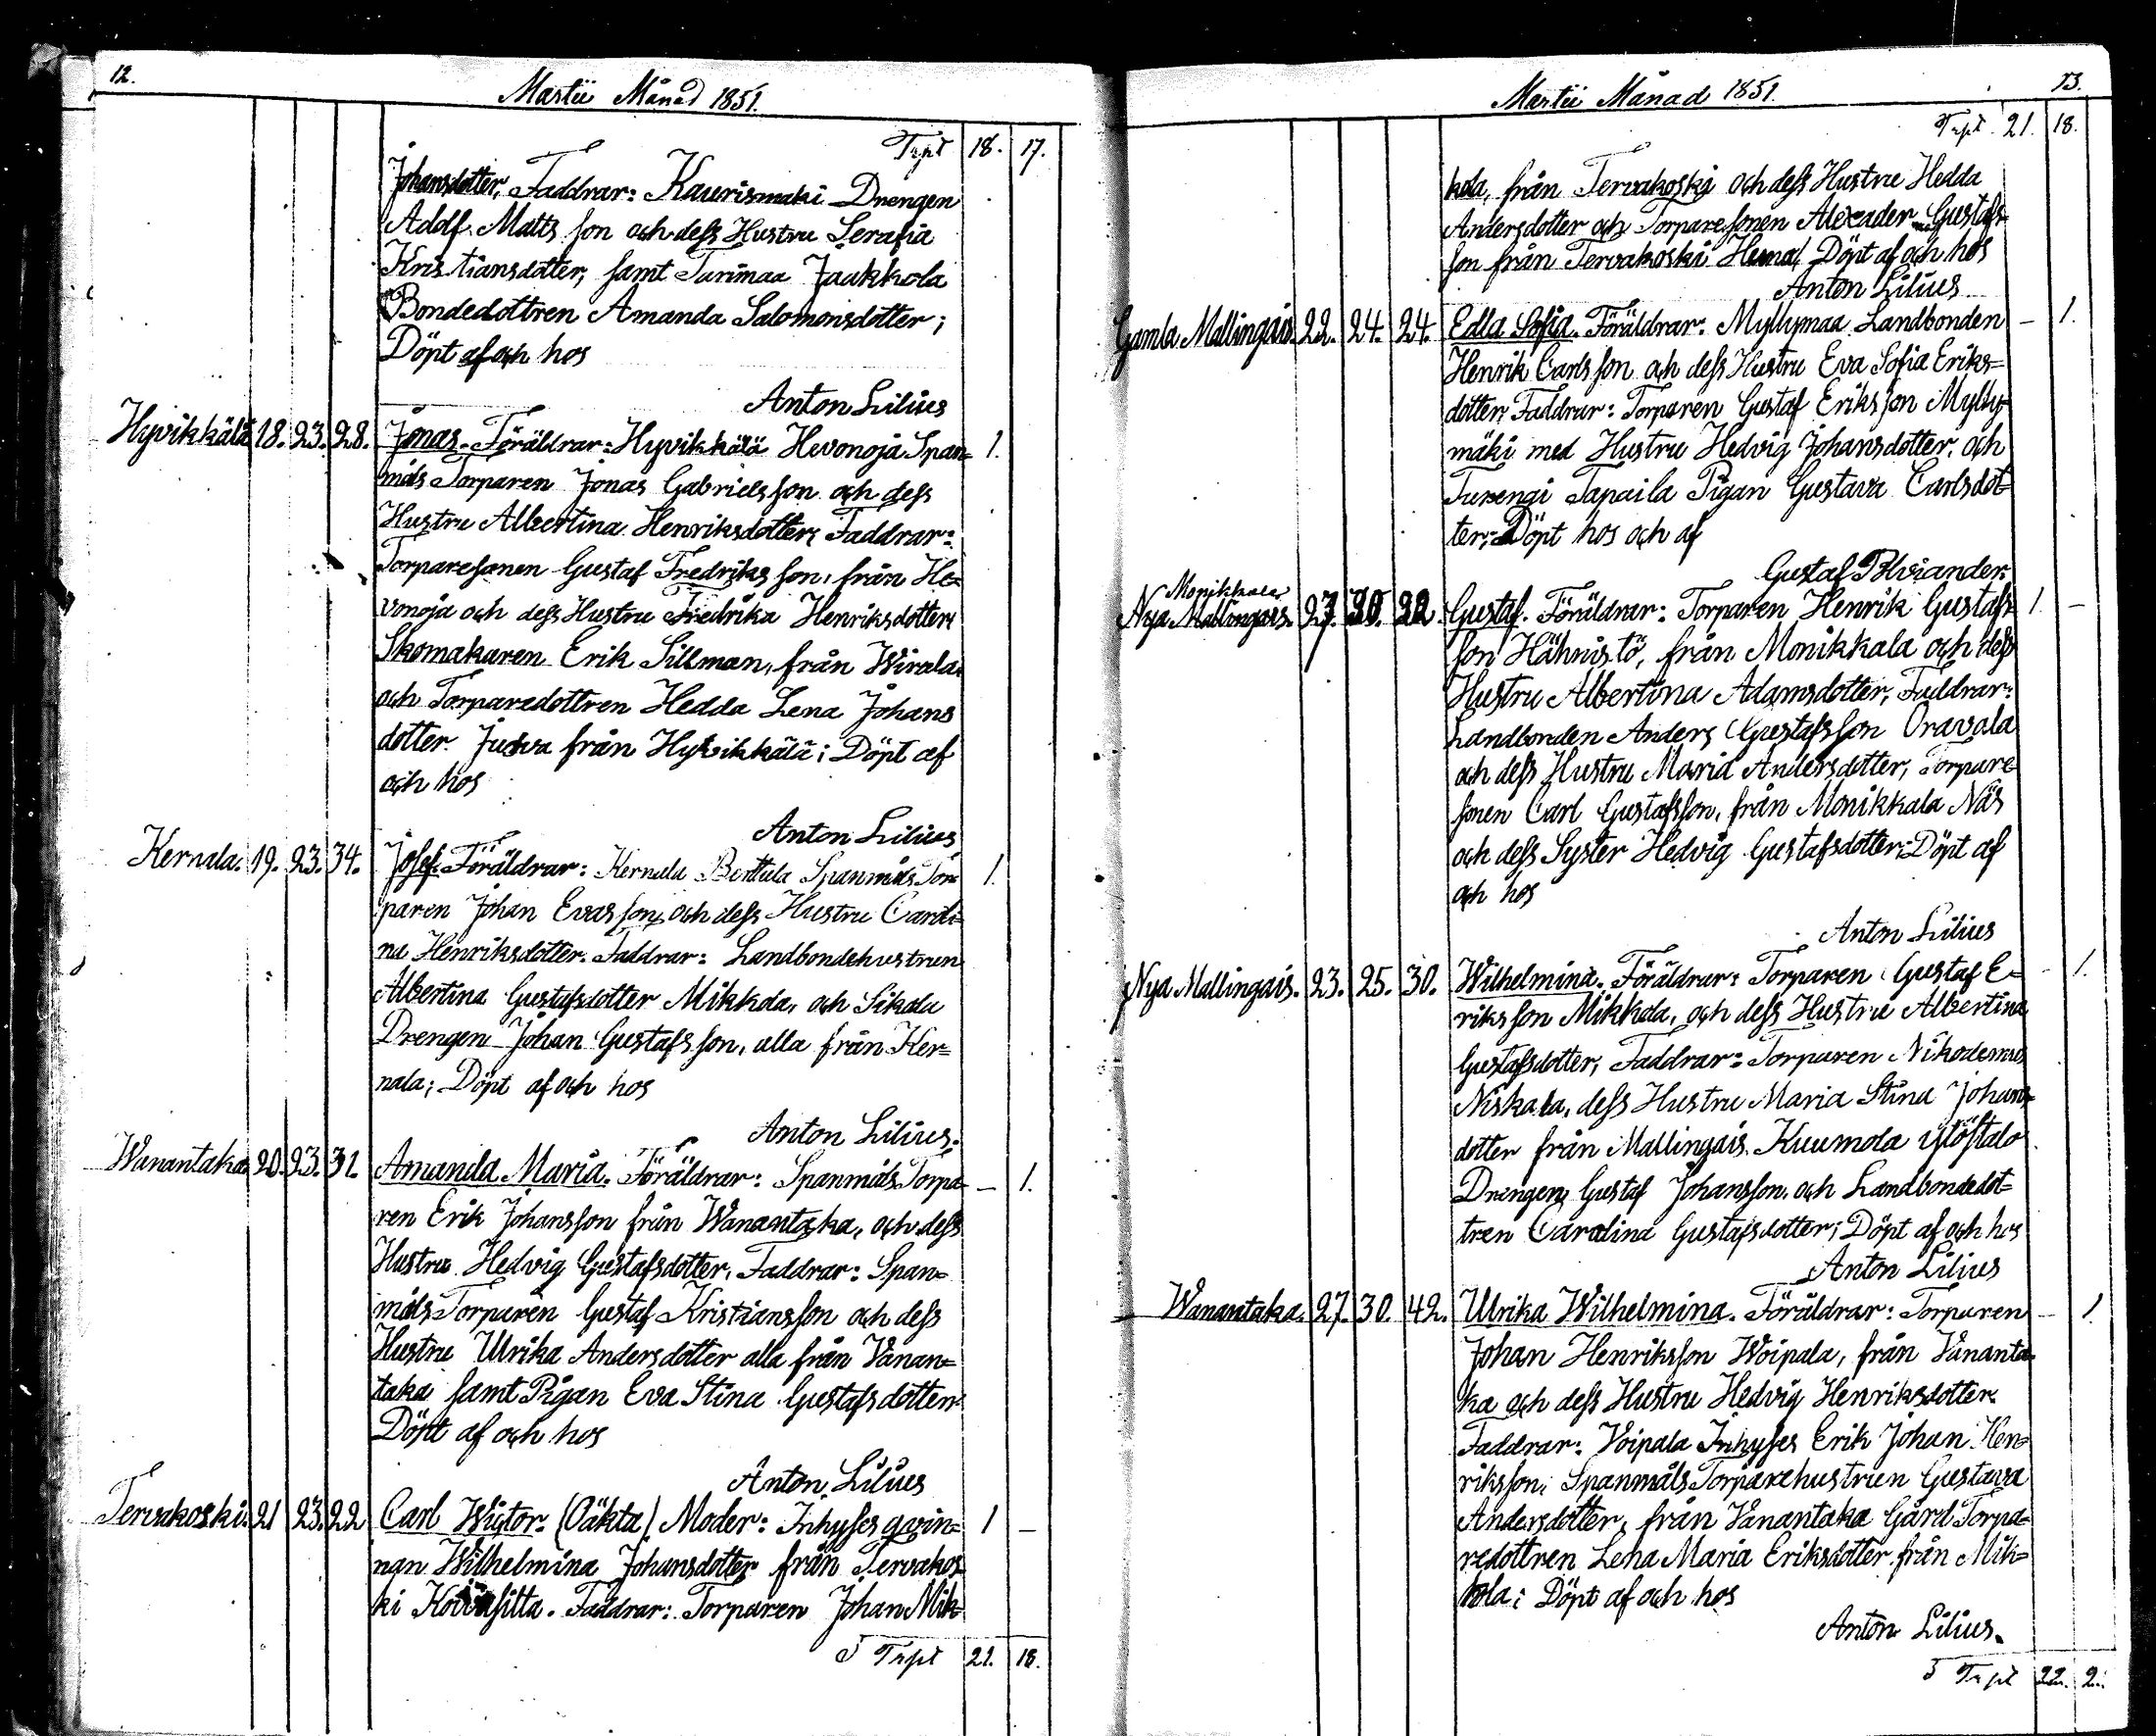 12.
Martii Månad 1851.
Trpt 18. 17.
Johansdotter, Faddrar: Kaurismaki Drengen
Adolf Matts son och dess Hustru Serafia
Kristiansdotter, samt Turimaa Jaakkola
Bondedottren Amanda Salomonsdotter;
Döpt af och hos
Anton Lilius
Hyvikkälä 18. 23. 28. Jonas. Föräldrar: Hyvikkälä Hevonoja Span= 1.
måls Torparen Jonas Gabriels son och dess
Hustru Albertina Henriksdotter, Faddrar:
Torparesonen Gustaf Fredriks son, från He=
vonoja och dess Hustru Fredrika Henriksdotter,
Skomakaren Erik Sillman, från Wirala
och Torparedottren Hedda Lena Johans
dotter från Hyvikkälä; Döpt af
och hos
Anton Lilius
Kernala. 19. 23. 34. Josef. Föräldrar: Kernala Berttula Spanmåls Tor= 1.
paren Johan Evasson, och dess Hustru Caroli=
na Henriksdotter. Faddrar: Landbondehustrun
Albertina Gustafsdotter Mikkola, och Sikala
Drengen Johan Gustafs son, alla från Ker=
nala; Döpt af och hos
Anton Lilius.
Wanantaka 20. 23. 31. Amanda Maria. Föräldrar: Spanmåls Torpa= – 1.
ren Erik Johansson från Wanantaka, och dess
Hustru Hedvig Gustafsdotter, Faddrar: Span=
måls Torparen Gustaf Kristiansson och dess
Hustru Ulrika Andersdotter alla från Vanan=
taka samt Pigan Eva Stina Gustafsdotter
Döpt af och hos
Anton Lilius
Tervakoski. 21 23. 22 Carl Wictor. (Oäkta) Moder: Inhyses qvin= 1 –
nan Wilhelmina Johansdotter från Tervakos=
ki. Faddrar: Torparen Johan Mik=
Trpt 21. 18.
Martii Månad 1851. 13.
Trpt 21. 18.
kola, från Tervakoski och dess Hustru Hedda
Andersdotter och Torparesonen Alexader Gustafs
son från Tervakoski Hema, Döpt af och hos
Anton Lilius
Gamla Mallingais. 22. 24. 24. Edla Sofia. Föräldrar: Myllymaa Landbonden – 1.
Henrik Carls son och dess Hustru Eva Sofia Eriks=
dotter, Faddrar: Torparen Gustaf Eriksson Mylly
mäki med Hustru Hedvig Johansdotter, och
Turengi Tapaila Pigan Gustava Carlsdot=
ter; Döpt hos och af
Gustaf Polviander.
Monikkala
Nya Mallingais. 27. 30. Gustaf. Föräldrar: Torparen Henrik Gustafs 1. –
son Hähnistö, från Monikkala och dess
Hustru Albertina Adamsdotter, Faddrar:
Landbonden Anders Gustafsson Oravala
och dess Hustru Maria Andersdotter, Torpare
sonen Carl Gustafsson, från Monikkala Näs
och dess Syster Hedvig Gustafsdotter; Döpt af
och hos
Anton Lilius
Nya Mallingais. 23. 25. 30. Wilhelmina. Föräldrar: Torparen Gustaf E= – 1.
riksson Mikkola, och dess Hustru Albertina
Gustafsdotter, Faddrar: Torparen Nikodemus
Niskala, dess Hustru Maria Stina Johans
dotter från Mallingais. Kuumola
Drengen Gustaf Johansson, och Landbondedot=
tren Carolina Gustafsdotter; Döpt af och hos
Anton Lilius
Wanantaka. 27. 30. 42. Ulrika Wilhelmina. Föräldrar: Torparen – 1.
Johan Henriksson Woipala, från Vananta=
ka och dess Hustru Hedvig Henriksdotter.
Faddrar: Voipala Inhyses Erik Johan Hen=
riksson, Spanmåls Torparehustrun Gustava
Andersdotter, från Vanantaka Gård Torpa=
redottren Lena Maria Eriksdotter, från Mik=
kola; Döpt af och hos
Anton Lilius.
Trpt 22. 2.